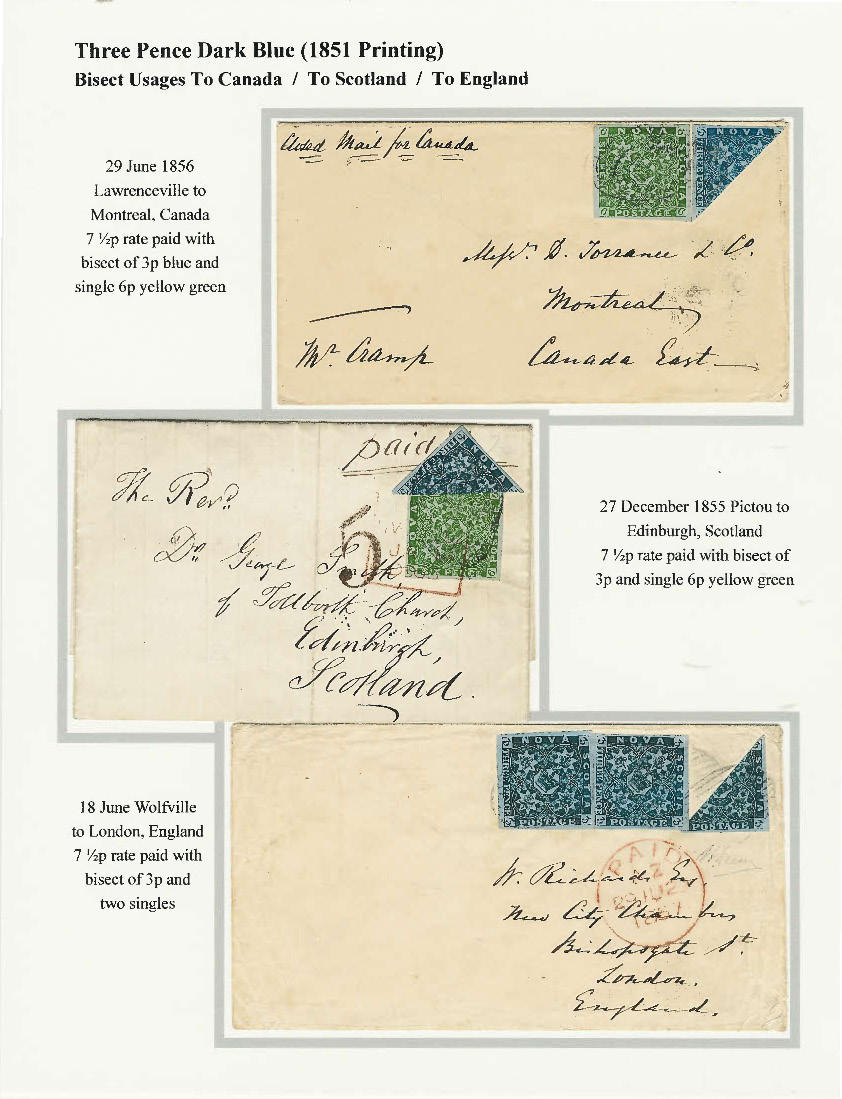 Three Pence Dark Blue (1851 Printing)
Bisect Usages To Canada / To Scotland / To England
29 June 1856
Lawrenceville to
Montreal, Canada
7 ½p rate paid with
bisect of 3p blue and
single 6p yellow green
Closed Mail for Canada
NOVA
SCOTIA
POSTAGE
NOVA
Messrs. D. Torrance & Co.
Montreal
Mr. Cramp
Canada East
paid
NOVA
The Revd.
5
Dr. George Smith,
of Tollbooth Church,
Edinburgh,
Scotland.
27 December 1855 Pictou to
Edinburgh, Scotland
7 ½p rate paid with bisect of
3p and single 6p yellow green
NOVA
SCOTIA
POSTAGE
NOVA
SCOTIA
POSTAGE
SCOTIA
POSTAGE
18 June Wolfville
to London, England
7 ½p rate paid with
bisect of 3p and
two singles
PAID
W. Richards Esq.
New City Chambers
Bishopsgate St.
London.
England.